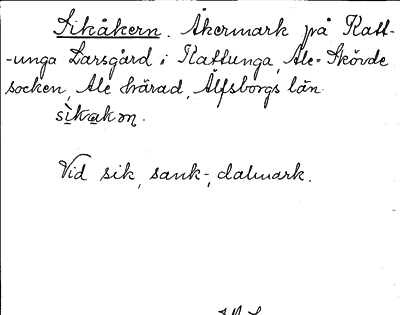 Sikåkern. Åkermark på Katt-
-unga Larsgård i Kattunga, Ale-Skövde
socken, Ale härad, Älfsborgs län.
sìkakən.
Vid sik, sank-, dalmark.